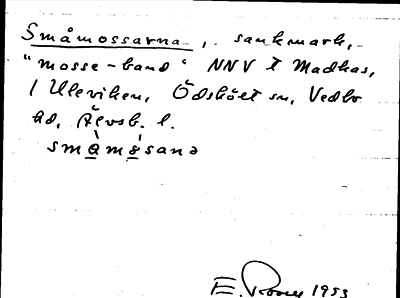 Småmossarna, sankmark,
"mosse-band" NNV t Madhas,
/ Uleviken, Ödskölt sn, Vedbo
hd, Älvsb. l.
småmosanə
E. 1953